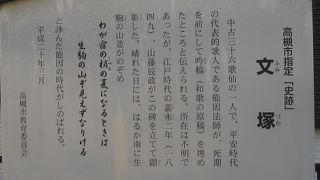 高槻市指定「史跡」
文塚
ふみ
づか
中古三十六歌仙の一人で、平安時代
の代表的歌人である能因法師が、死期
を前にして吟稿（和歌の原稿）を埋め
たところと伝えられる。所在は不明で
あったが、江戸時代の嘉永二年（一八
四九）、山藤辰政がこの碑を立てて顕
彰した。晴れた日には、はるか南に生
駒の山並がのぞめ
わが宿の梢の夏になるときは
生駒の山ぞ見えずなりける
と詠んだ能因の時代がしのばれる。
平成二十年三月
高槻市教育委員会